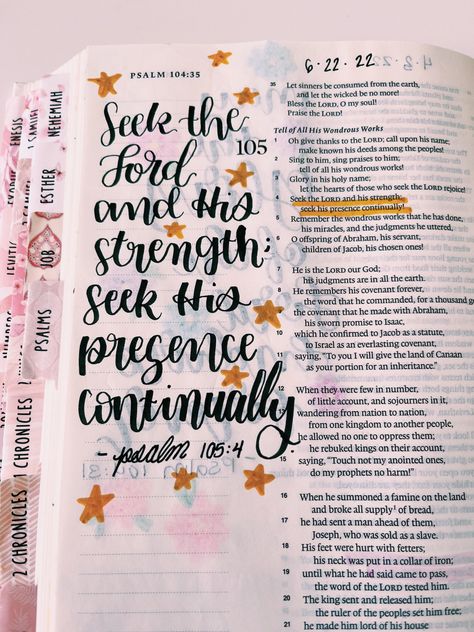 PSALM 104:35
6·22·22
Seek the
Lord
and His
strength;
seek His
presence
continually
- psalm 105:4
35 Let sinners be consumed from the earth,
and let the wicked be no more!
Bless the LORD, O my soul!
Praise the LORD!
Tell of All His Wondrous Works
105
1 Oh give thanks to the LORD; call upon his name;
make known his deeds among the peoples!
2 Sing to him, sing praises to him;
tell of all his wondrous works!
3 Glory in his holy name;
let the hearts of those who seek the LORD rejoice!
4 Seek the LORD and his strength;
seek his presence continually!
5 Remember the wondrous works that he has done,
his miracles, and the judgments he uttered,
6 O offspring of Abraham, his servant,
children of Jacob, his chosen ones!
7 He is the LORD our God;
his judgments are in all the earth.
8 He remembers his covenant forever,
the word that he commanded, for a thousand
9 the covenant that he made with Abraham,
his sworn promise to Isaac,
10 which he confirmed to Jacob as a statute,
to Israel as an everlasting covenant,
11 saying, "To you I will give the land of Canaan
as your portion for an inheritance."
12 When they were few in number,
of little account, and sojourners in it,
13 wandering from nation to nation,
from one kingdom to another people,
14 he allowed no one to oppress them;
he rebuked kings on their account,
15 saying, "Touch not my anointed ones,
do my prophets no harm!"
16 When he summoned a famine on the land
and broke all supply of bread,
17 he had sent a man ahead of them,
Joseph, who was sold as a slave.
18 His feet were hurt with fetters;
his neck was put in a collar of iron;
19 until what he had said came to pass,
the word of the LORD tested him.
20 The king sent and released him;
the ruler of the peoples set him free;
21 he made him lord of his house
GENESIS
1 SAMUEL
NEHEMIAH
ESTHER
JOB
PSALMS
1 CHRONICLES
2 CHRONICLES